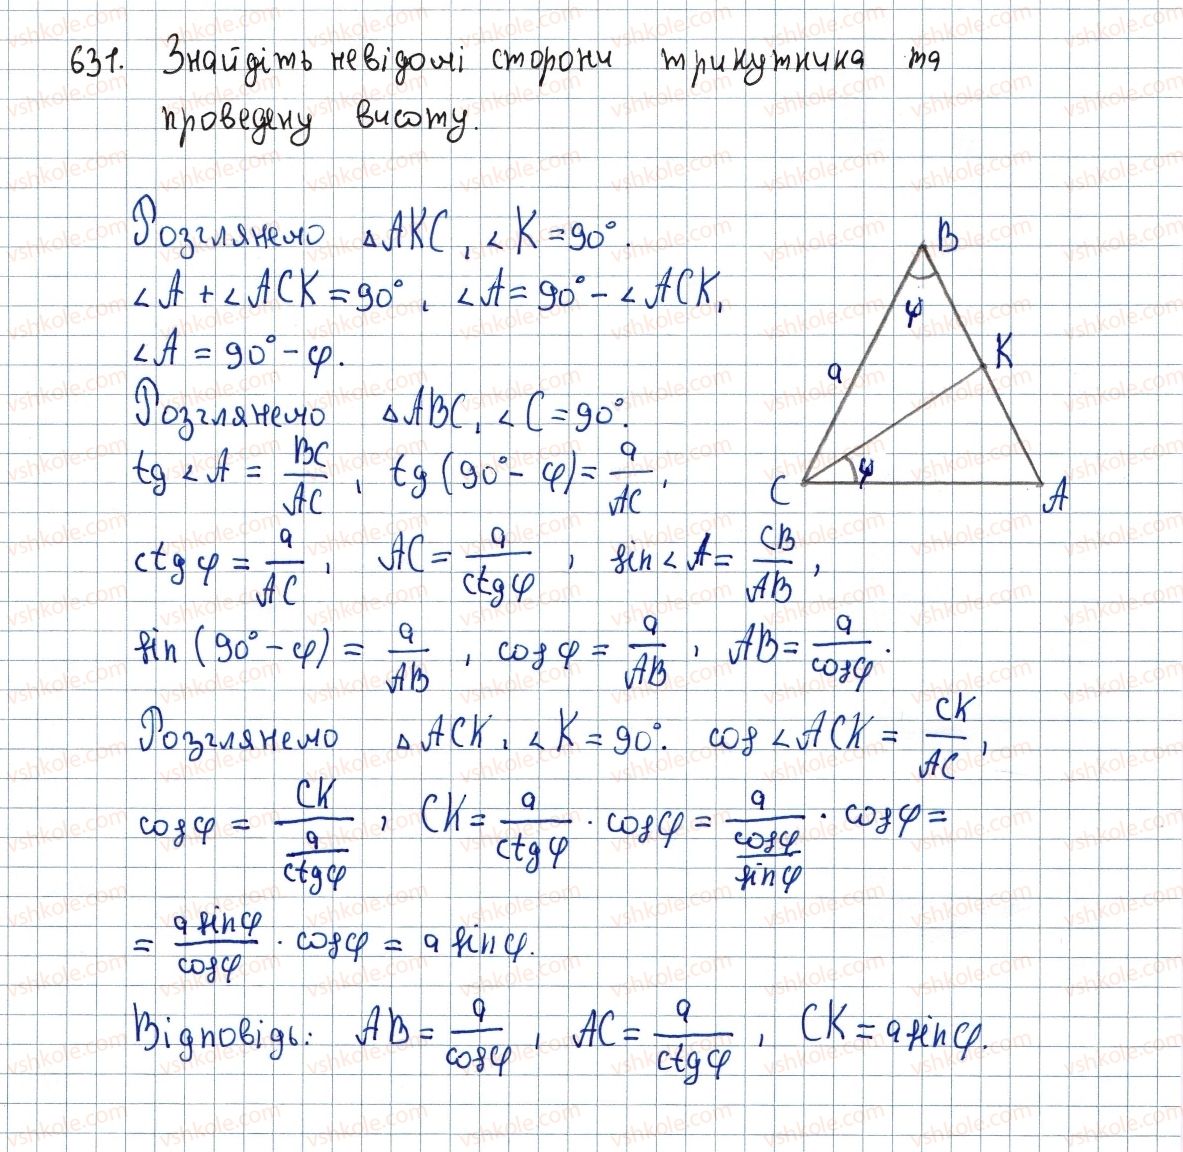 631. Знайдіть невідомі сторони трикутника та
проведену висоту.
Розглянемо △AKC, ∠K = 90°.
∠A + ∠ACK = 90°, ∠A = 90° − ∠ACK,
∠A = 90° − φ.
Розглянемо △ABC, ∠C = 90°.
tg∠A = BC/AC, tg(90° − φ) = a/AC,
ctgφ = a/AC, AC = a/ctgφ, sin∠A = CB/AB,
sin(90° − φ) = a/AB, cosφ = a/AB, AB = a/cosφ.
Розглянемо △ACK, ∠K = 90°. cos∠ACK = CK/AC,
cosφ = CK/(a/ctgφ), CK = a/ctgφ · cosφ = a/(cosφ/sinφ) · cosφ =
= a sinφ/cosφ · cosφ = a sinφ.
Відповідь: AB = a/cosφ, AC = a/ctgφ, CK = a sinφ.
B
φ
K
a
C
φ
A
vshkole.com